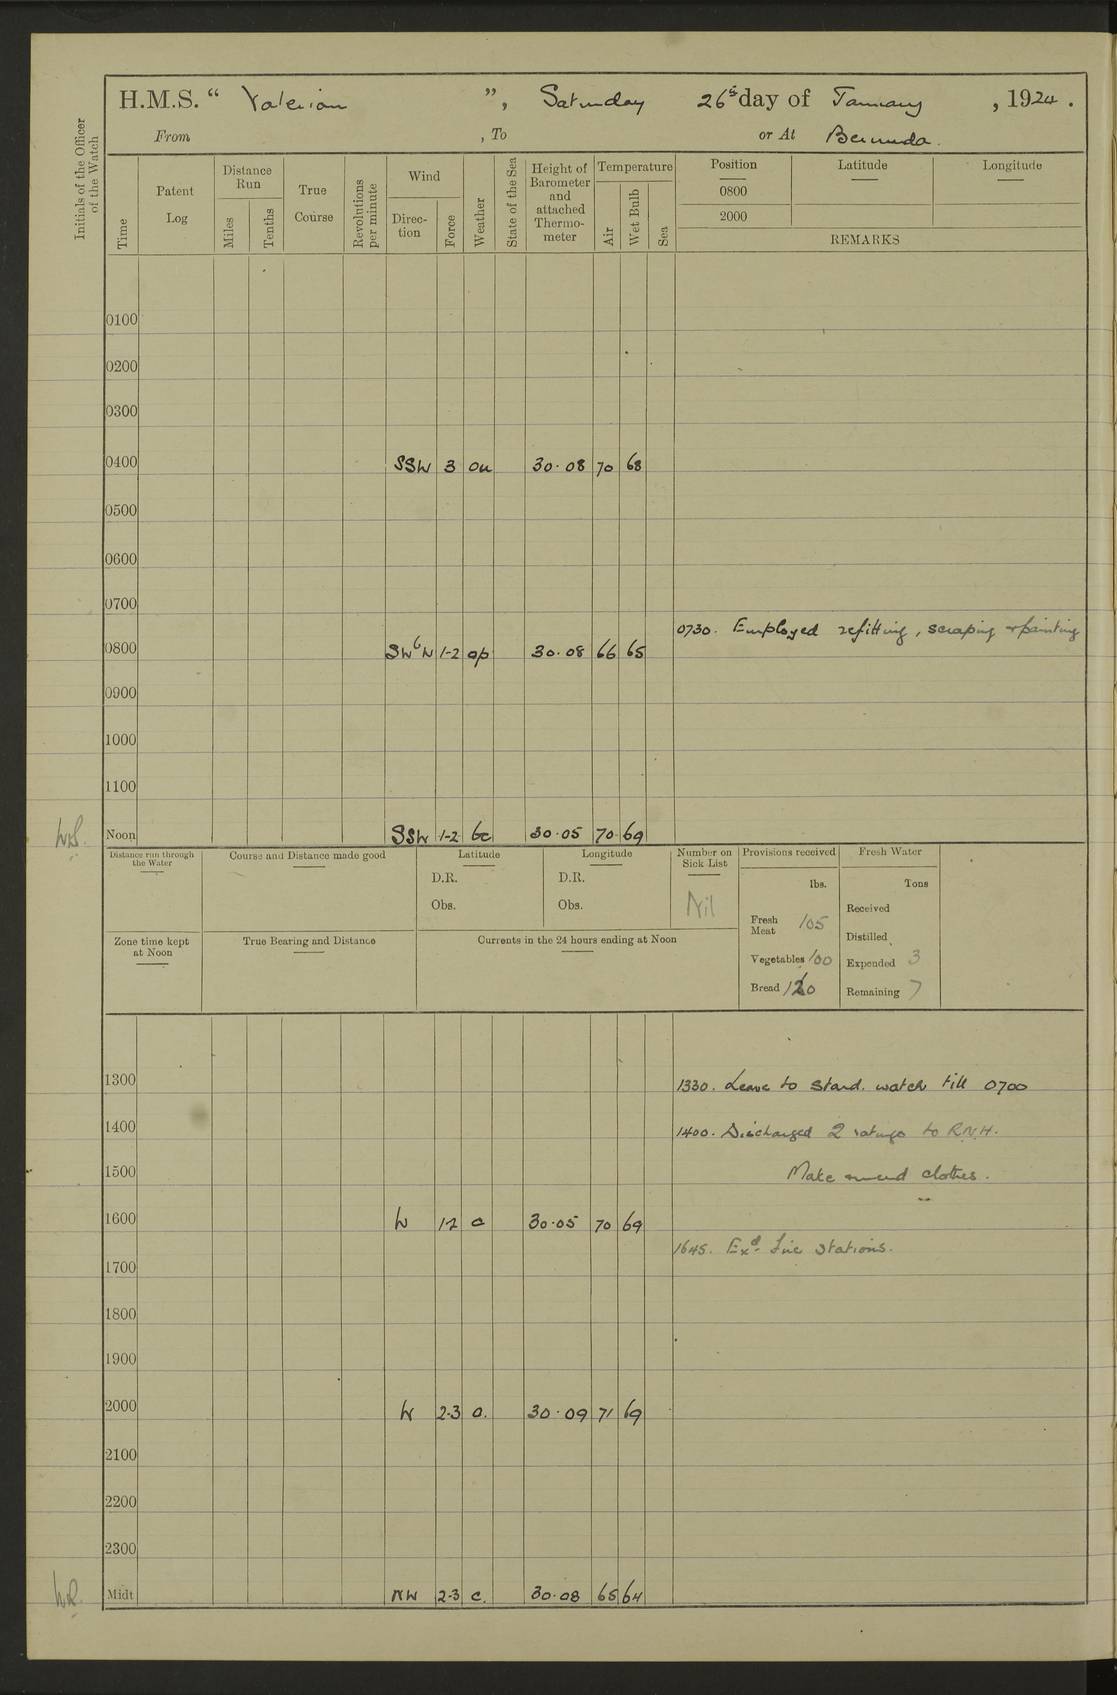 H.M.S. “ Valerian ”, Saturday 26th day of January, 1924.
From , To or At Bermuda.
Initials of the Officer of the Watch
Time
Patent Log
Distance Run
Miles
Tenths
True Course
Revolutions per minute
Wind
Direc-tion
Force
Weather
State of the Sea
Height of Barometer and attached Thermo-meter
Temperature
Air
Wet Bulb
Sea
Position
Latitude
Longitude
0800
2000
REMARKS
0100
0200
0300
0400 SSW 3 ou 30·08 70 68
0500
0600
0700
0730. Employed refitting, scraping & painting
0800 SWbW 1-2 op 30.08 66 65
0900
1000
1100
Noon SSW 1-2 bc 30·05 70 69
Distance run through the Water
Course and Distance made good
Latitude
D.R.
Obs.
Longitude
D.R.
Obs.
Number on Sick List
Nil
Provisions received
lbs.
Fresh Meat 105
Vegetables 100
Bread 120
Fresh Water
Tons
Received
Distilled
Expended 3
Remaining 7
Zone time kept at Noon
True Bearing and Distance
Currents in the 24 hours ending at Noon
1300
1330. Leave to Stard. watch till 0700
1400
1400. Discharged 2 ratings to R.N.H.
1500
Make & mend clothes.
1600 W 1-2 c 30·05 70 69
1645. Exd. Fire Stations.
1700
1800
1900
2000 W 2-3 o. 30·09 71 69
2100
2200
2300
Midt NW 2-3 c. 30·08 65 64